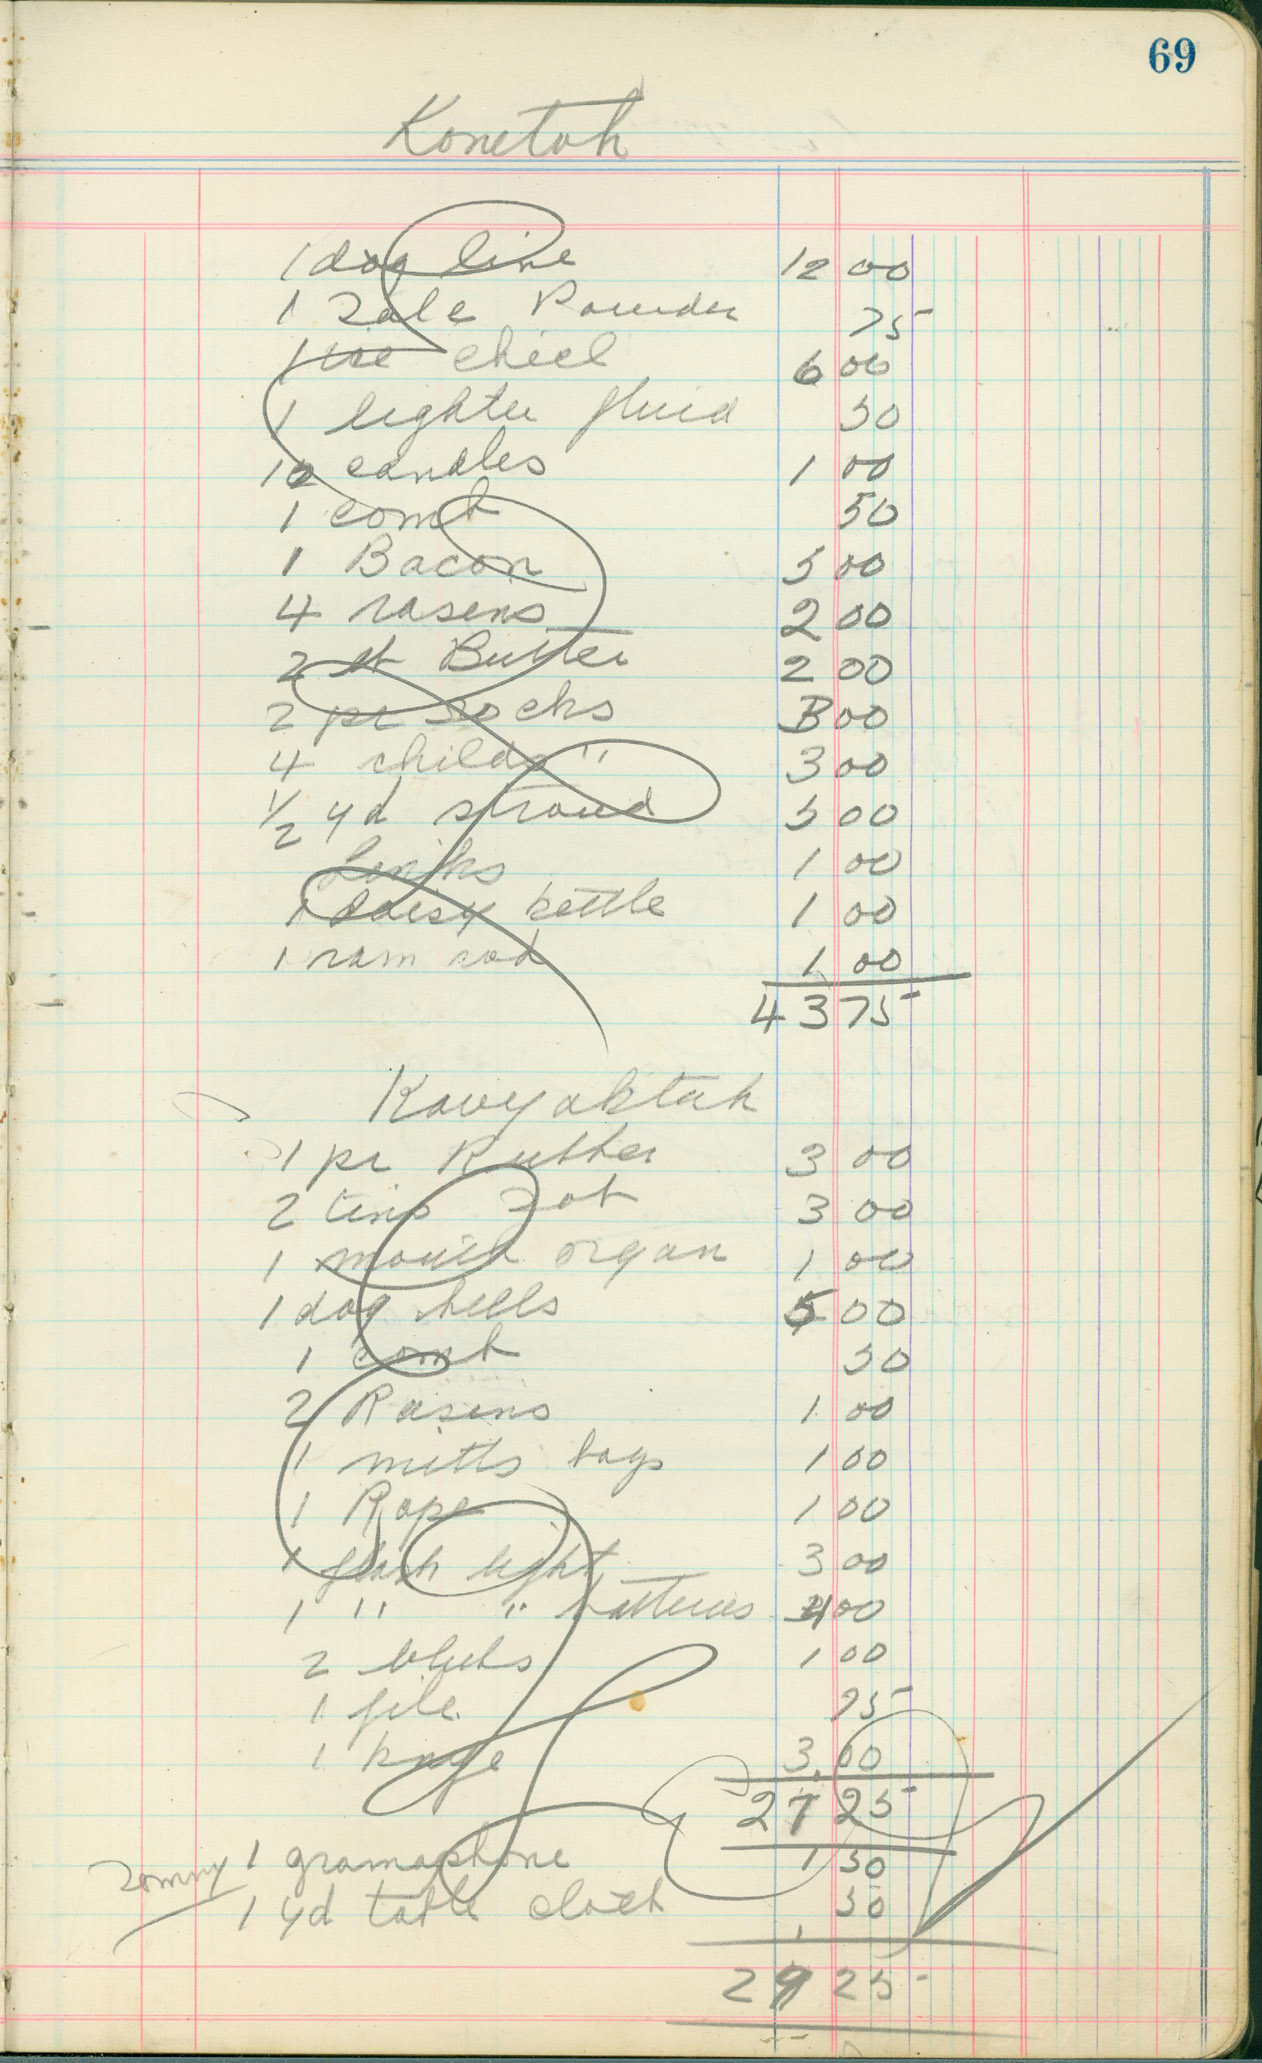 69
Konetah
1 dog line 12 00
1 Talc Powder 75
1 ice chiel 6 00
1 lighter fluid 50
10 candles 1 00
1 comb 50
1 Bacon 5 00
4 rasens 2 00
2 lb Butter 2 00
2 pr socks 3 00
4 childs " 3 00
1/2 yd stroud 5 00
1 00
1 daisy kettle 1 00
1 ram rod 1 00
43 75
Kovyaktah
1 pr Rubber 3 00
2 tins Tob 3 00
1 mouth organ 1 00
1 dog bells 5 00
1 comb 50
2 Rasens 1 00
1 mitts bags 1 00
1 Rope 1 00
1 flash light 3 00
1 " " batteries 4 00
2 blubs 1 00
1 file 75
1 knife 3.00
27 25
Tommy 1 gramaphone 1 50
1 yd table cloth 50
29 25